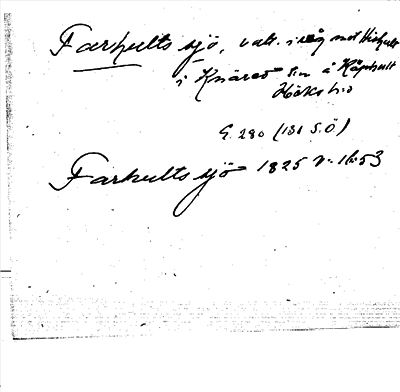 Farhults sjö, vatt. i väg mot Hishult
i Knäred sn å Käphult
Höks hd
G. 280 (131 S.Ö)
Farhults sjö 1825 v. 16:53